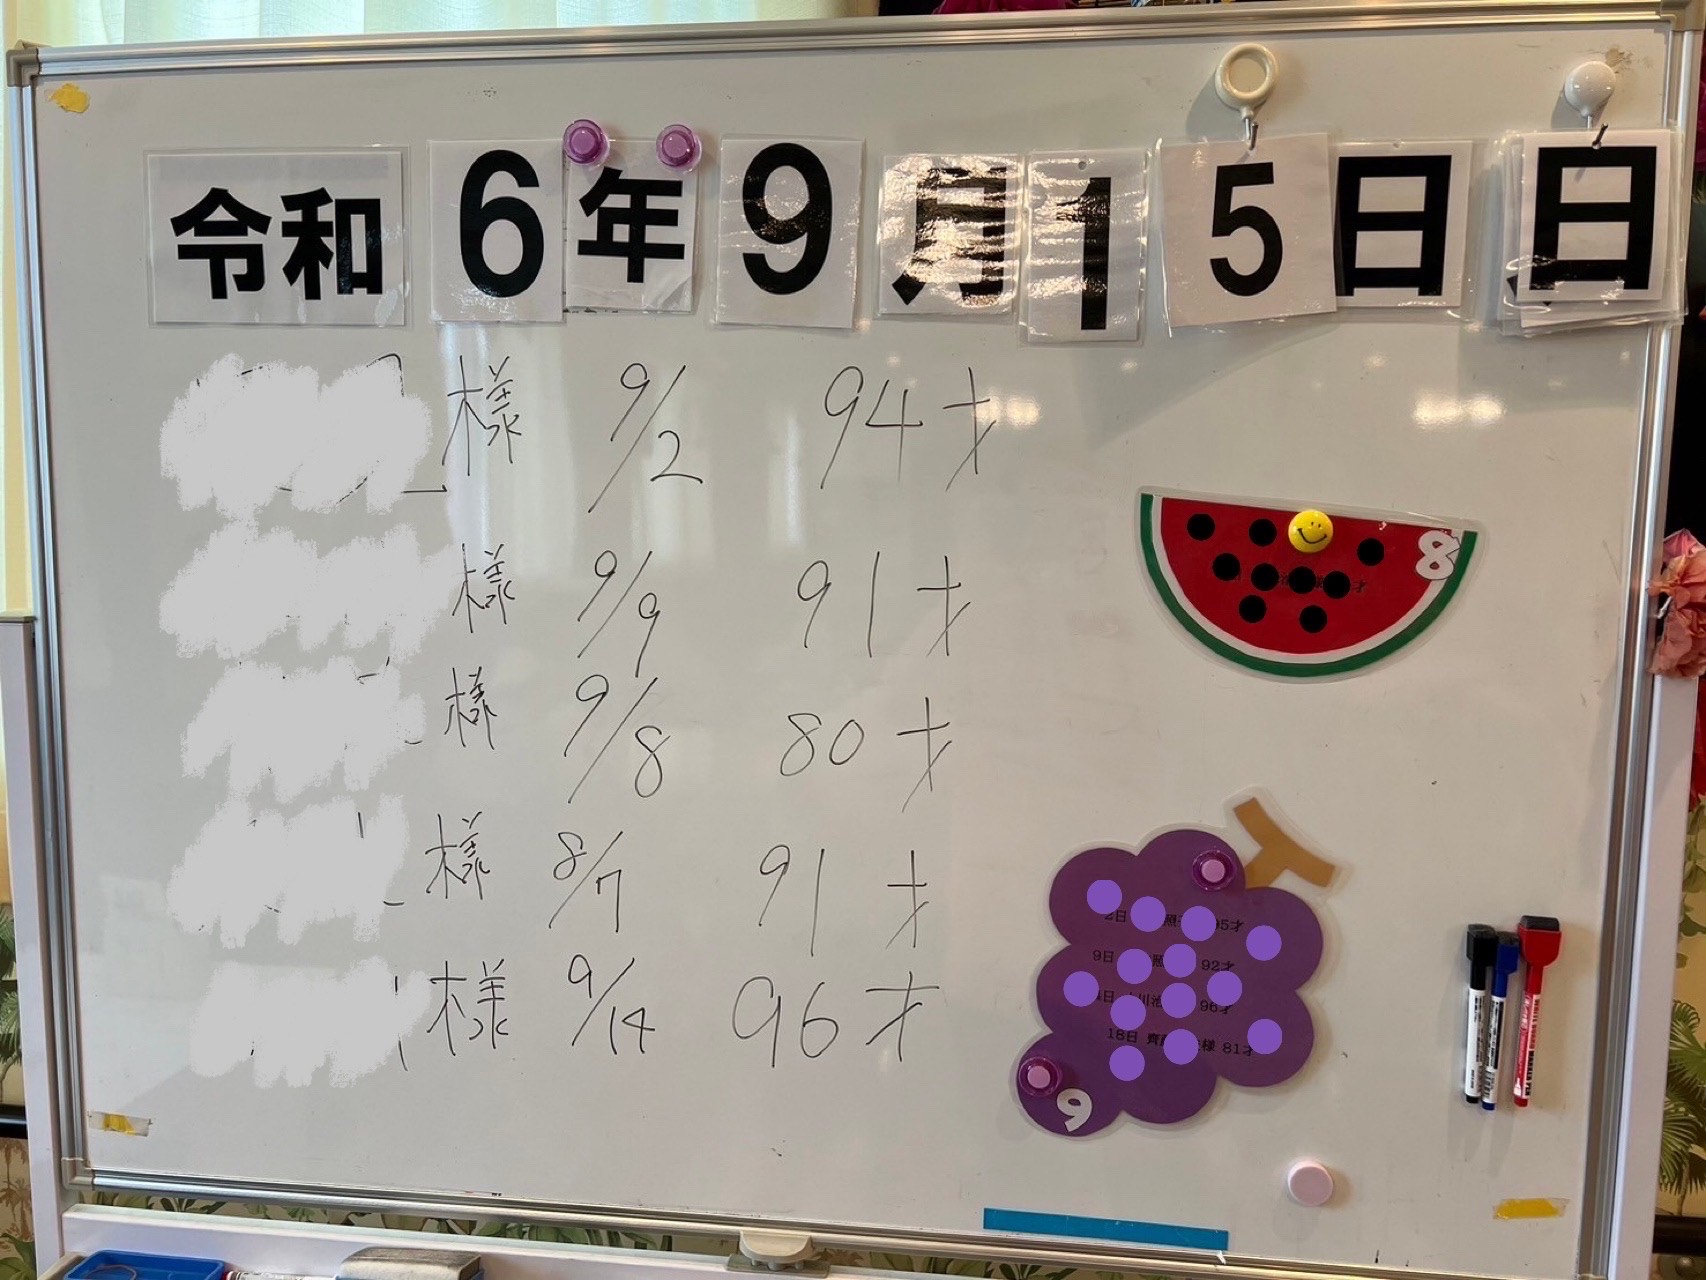 令和6年9月15日 日
様 9/2 94才
様 9/9 91才
様 9/8 80才
様 8/7 91才
様 9/14 96才
8
才
2日 照 95才
9日 照 92才
日 川 96才
18日 齊 様 81才
9